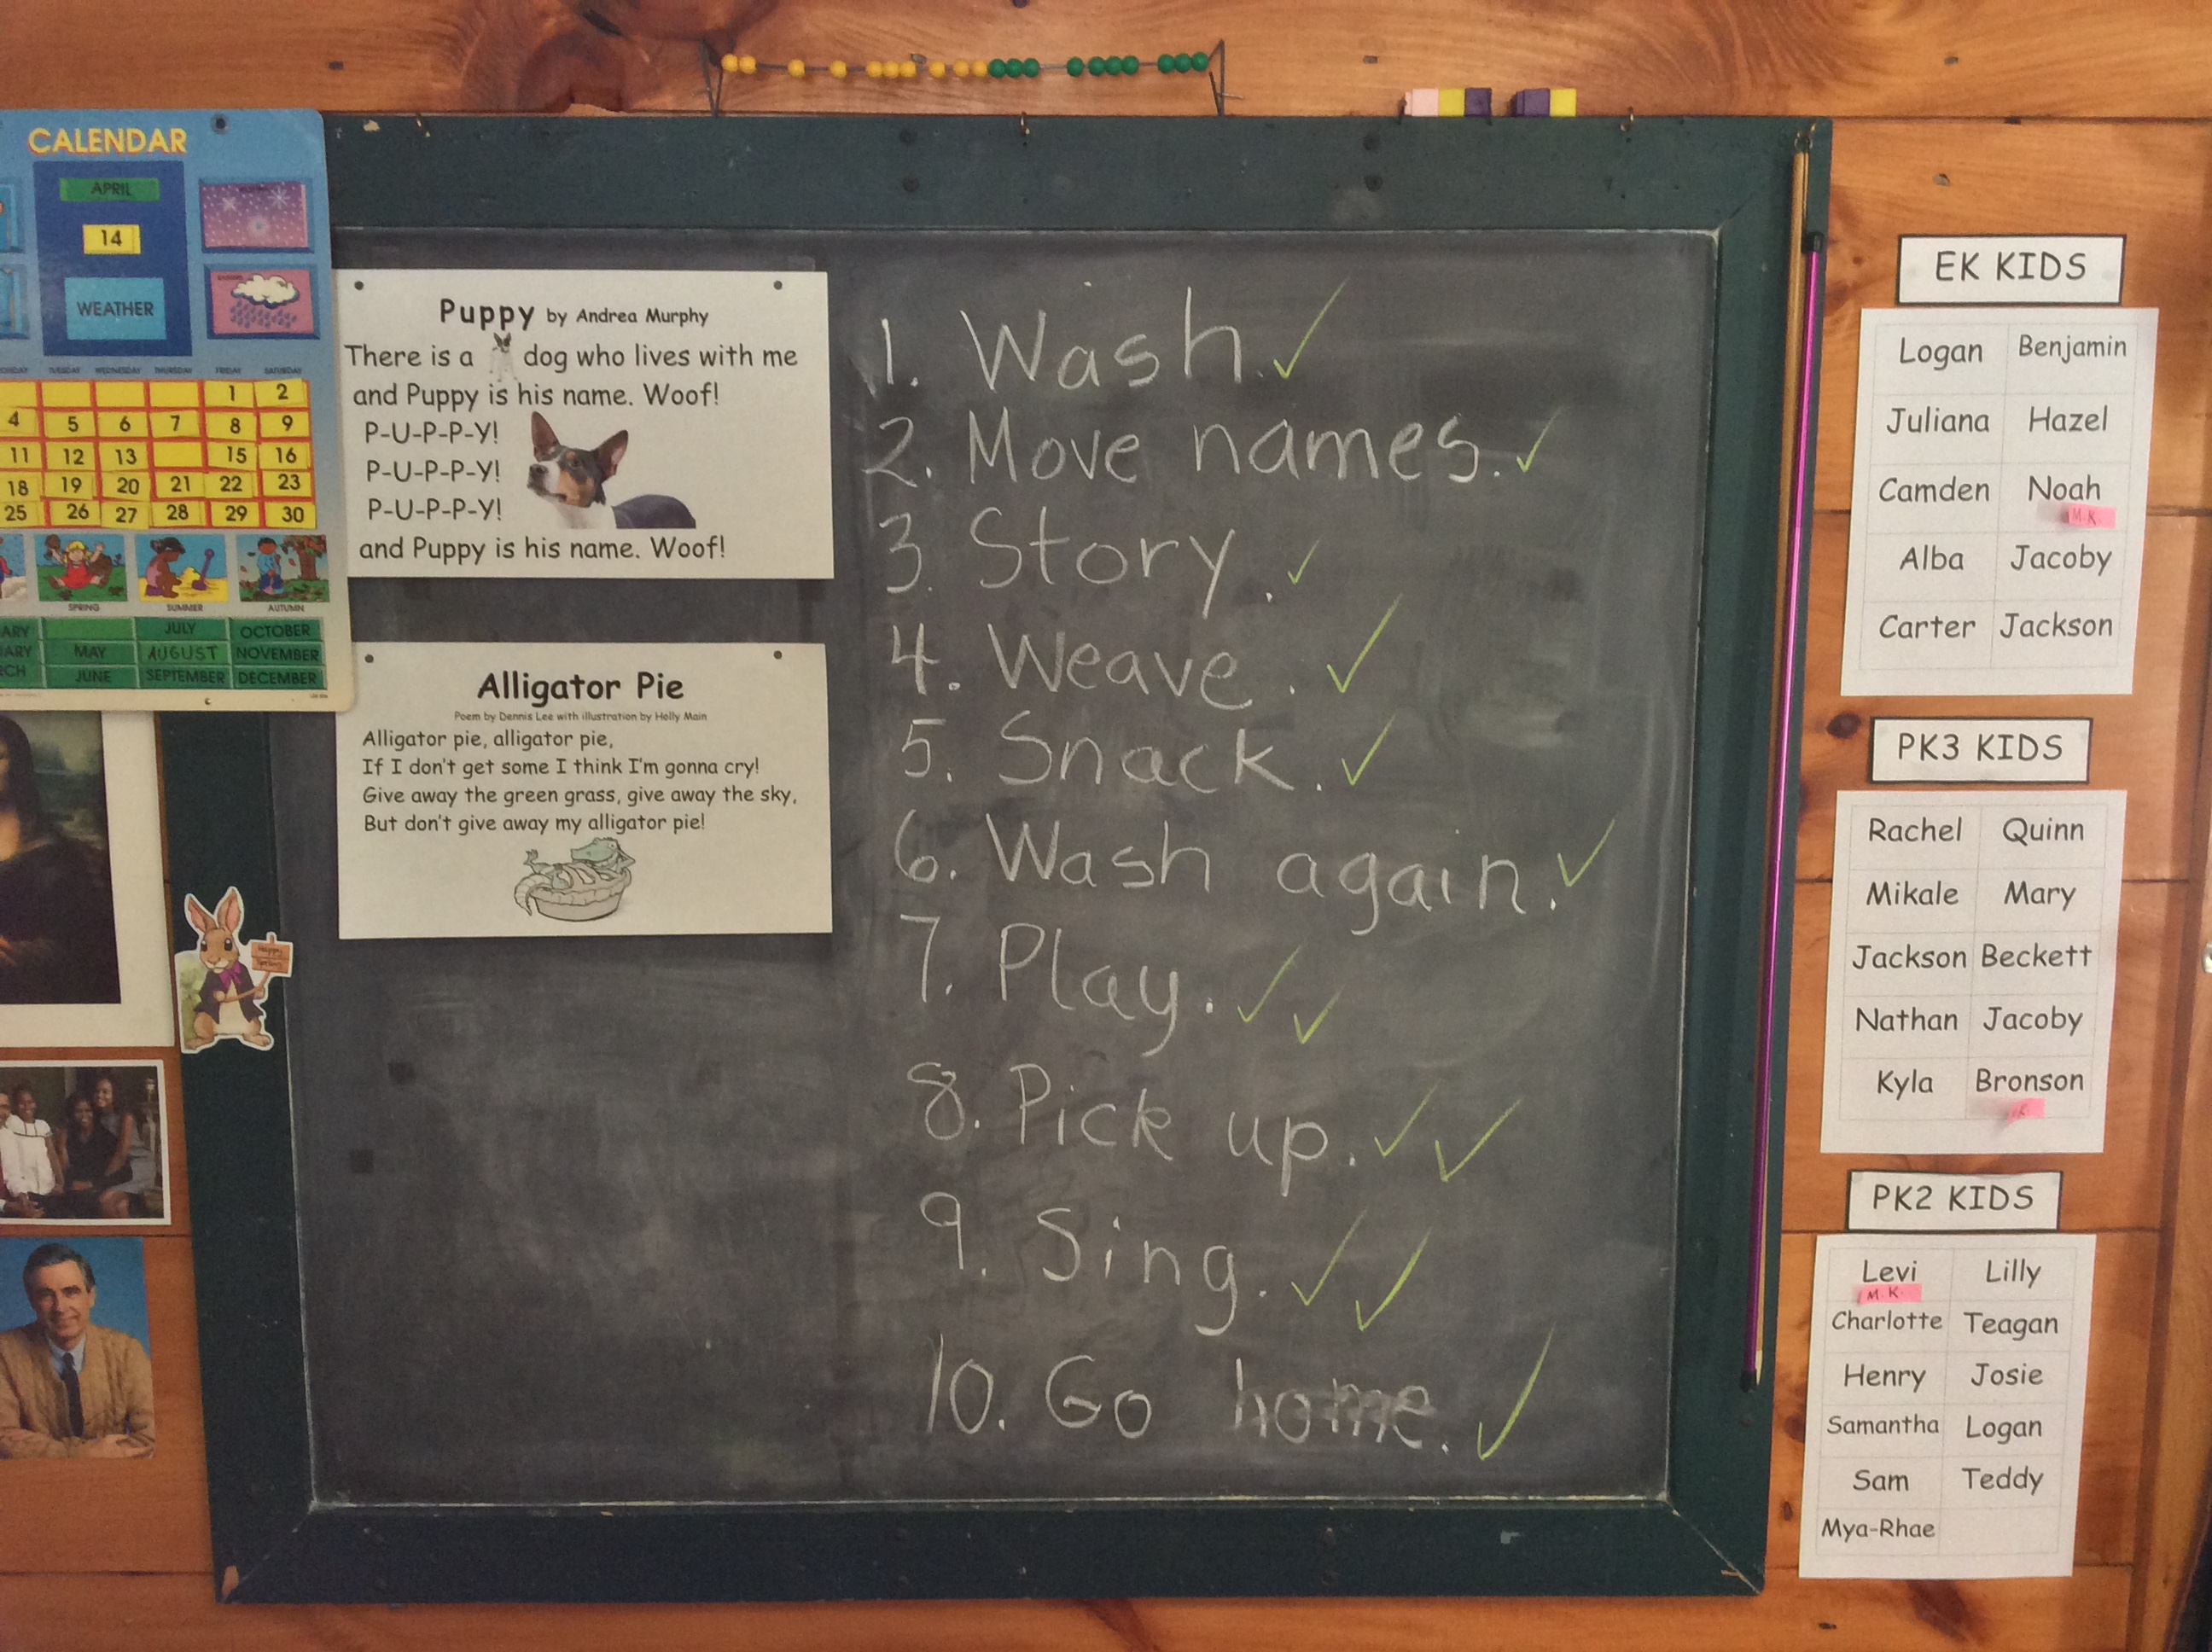 CALENDAR
APRIL
14
WEATHER
TUESDAY WEDNESDAY THURSDAY FRIDAY SATURDAY
1 2
4 5 6 7 8 9
11 12 13 15 16
18 19 20 21 22 23
25 26 27 28 29 30
SPRING SUMMER AUTUMN
ARY JULY OCTOBER
UARY MAY AUGUST NOVEMBER
RCH JUNE SEPTEMBER DECEMBER
Happy
Spring
Puppy by Andrea Murphy
There is a dog who lives with me
and Puppy is his name. Woof!
P-U-P-P-Y!
P-U-P-P-Y!
P-U-P-P-Y!
and Puppy is his name. Woof!
Alligator Pie
Poem by Dennis Lee with illustration by Holly Main
Alligator pie, alligator pie,
If I don't get some I think I'm gonna cry!
Give away the green grass, give away the sky,
But don't give away my alligator pie!
1. Wash.
2. Move names.
3. Story.
4. Weave.
5. Snack.
6. Wash again.
7. Play.
8. Pick up.
9. Sing.
10. Go home.
EK KIDS
Logan Benjamin
Juliana Hazel
Camden Noah
M.K.
Alba Jacoby
Carter Jackson
PK3 KIDS
Rachel Quinn
Mikale Mary
Jackson Beckett
Nathan Jacoby
Kyla Bronson
PK2 KIDS
Levi Lilly
M.K.
Charlotte Teagan
Henry Josie
Samantha Logan
Sam Teddy
Mya-Rhae